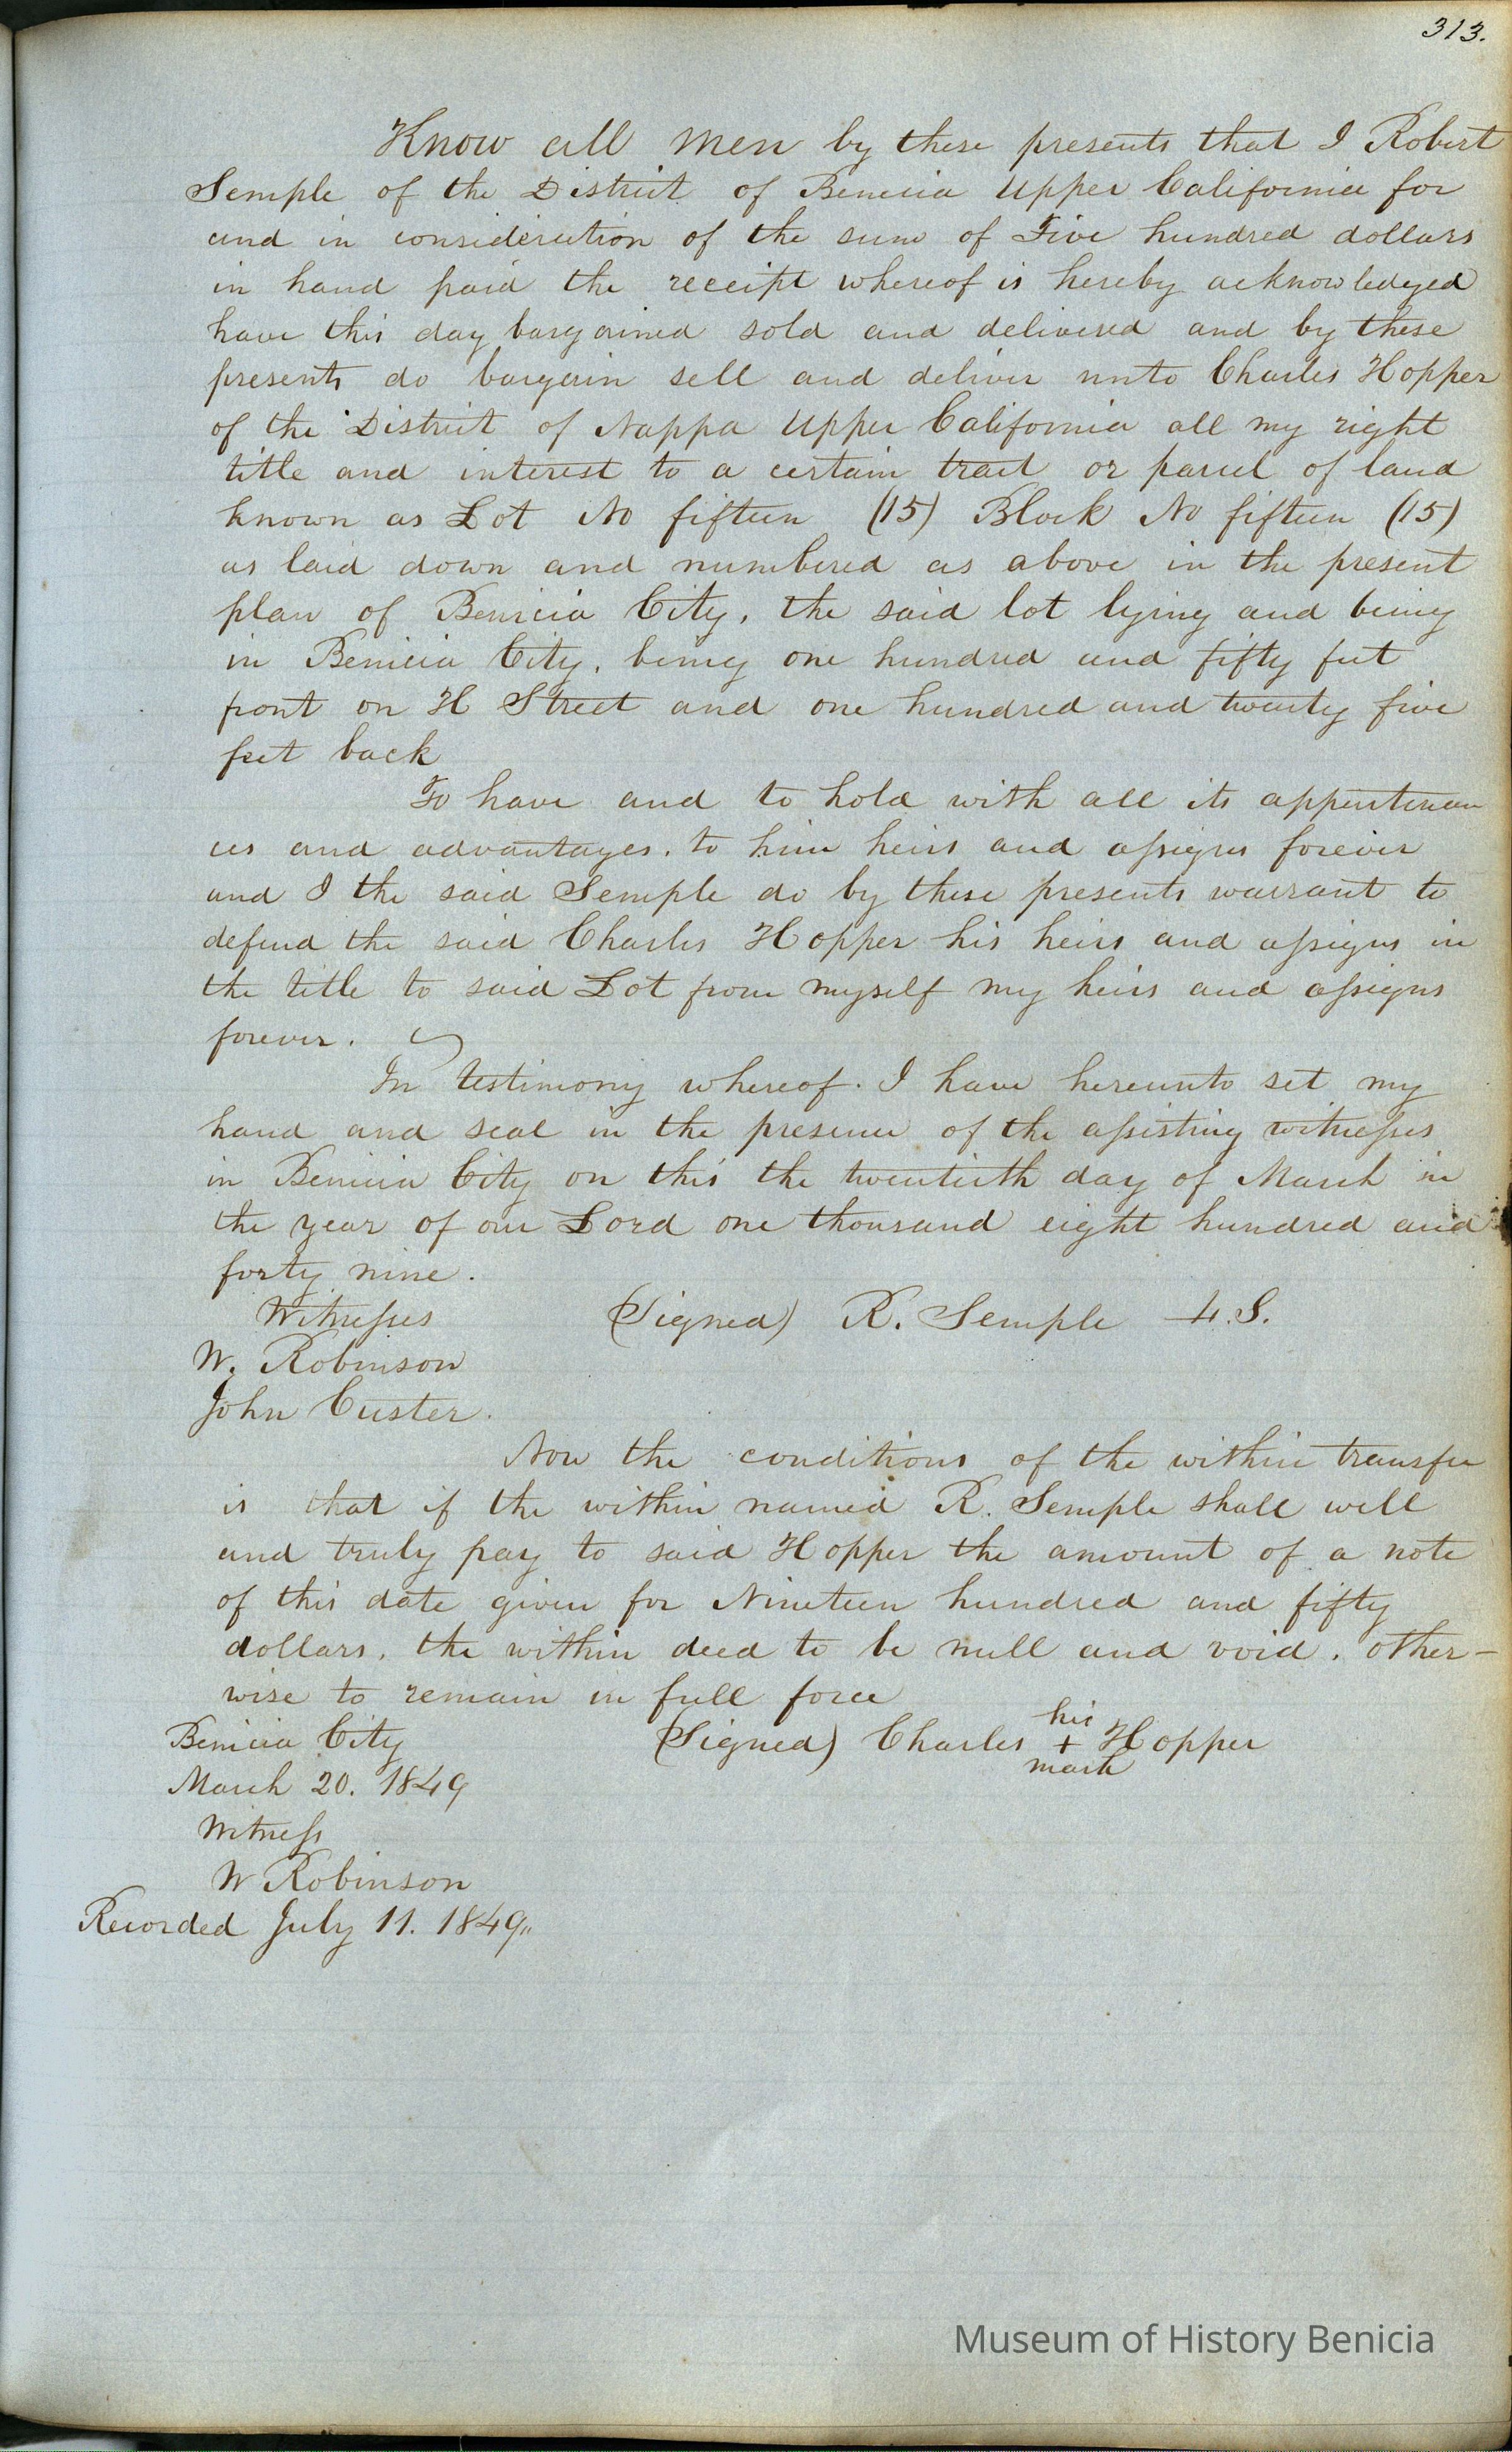 313.
Know all men by these presents that I Robert
Semple of the District of Benicia Upper California for
and in consideration of the sum of Five hundred dollars
in hand paid the receipt whereof is hereby acknowledged
have this day bargained sold and delivered and by these
presents do bargain sell and deliver unto Charles Hopper
of the District of Nappa Upper California all my right
title and interest to a certain tract or parcel of land
known as Lot No fifteen (15) Block No fifteen (15)
as laid down and numbered as above in the present
plan of Benicia City, the said lot lying and being
in Benicia City, being one hundred and fifty feet
front on H Street and one hundred and twenty five
feet back
To have and to hold with all its appurtenan
ces and advantages. to him heirs and assigns forever
and I the said Semple do by these presents warrant to
defend the said Charles Hopper his heirs and assigns in
the title to said Lot from myself my heirs and assigns
forever.
In testimony whereof. I have hereunto set my
hand and seal in the presence of the assisting witnesses
in Benicia City on this the twentieth day of March in
the year of our Lord one thousand eight hundred and
forty nine.
Witnesses (Signed) R. Semple L.S.
W. Robinson
John Custer.
Now the conditions of the within transfer
is that if the within named R. Semple shall well
and truly pay to said Hopper the amount of a note
of this date given for Nineteen hundred and fifty
dollars, the within deed to be null and void. other-
wise to remain in full force
his
Benicia City (Signed) Charles + Hopper
mark
March 20. 1849
Witness
W Robinson
Recorded July 11. 1849.
Museum of History Benicia